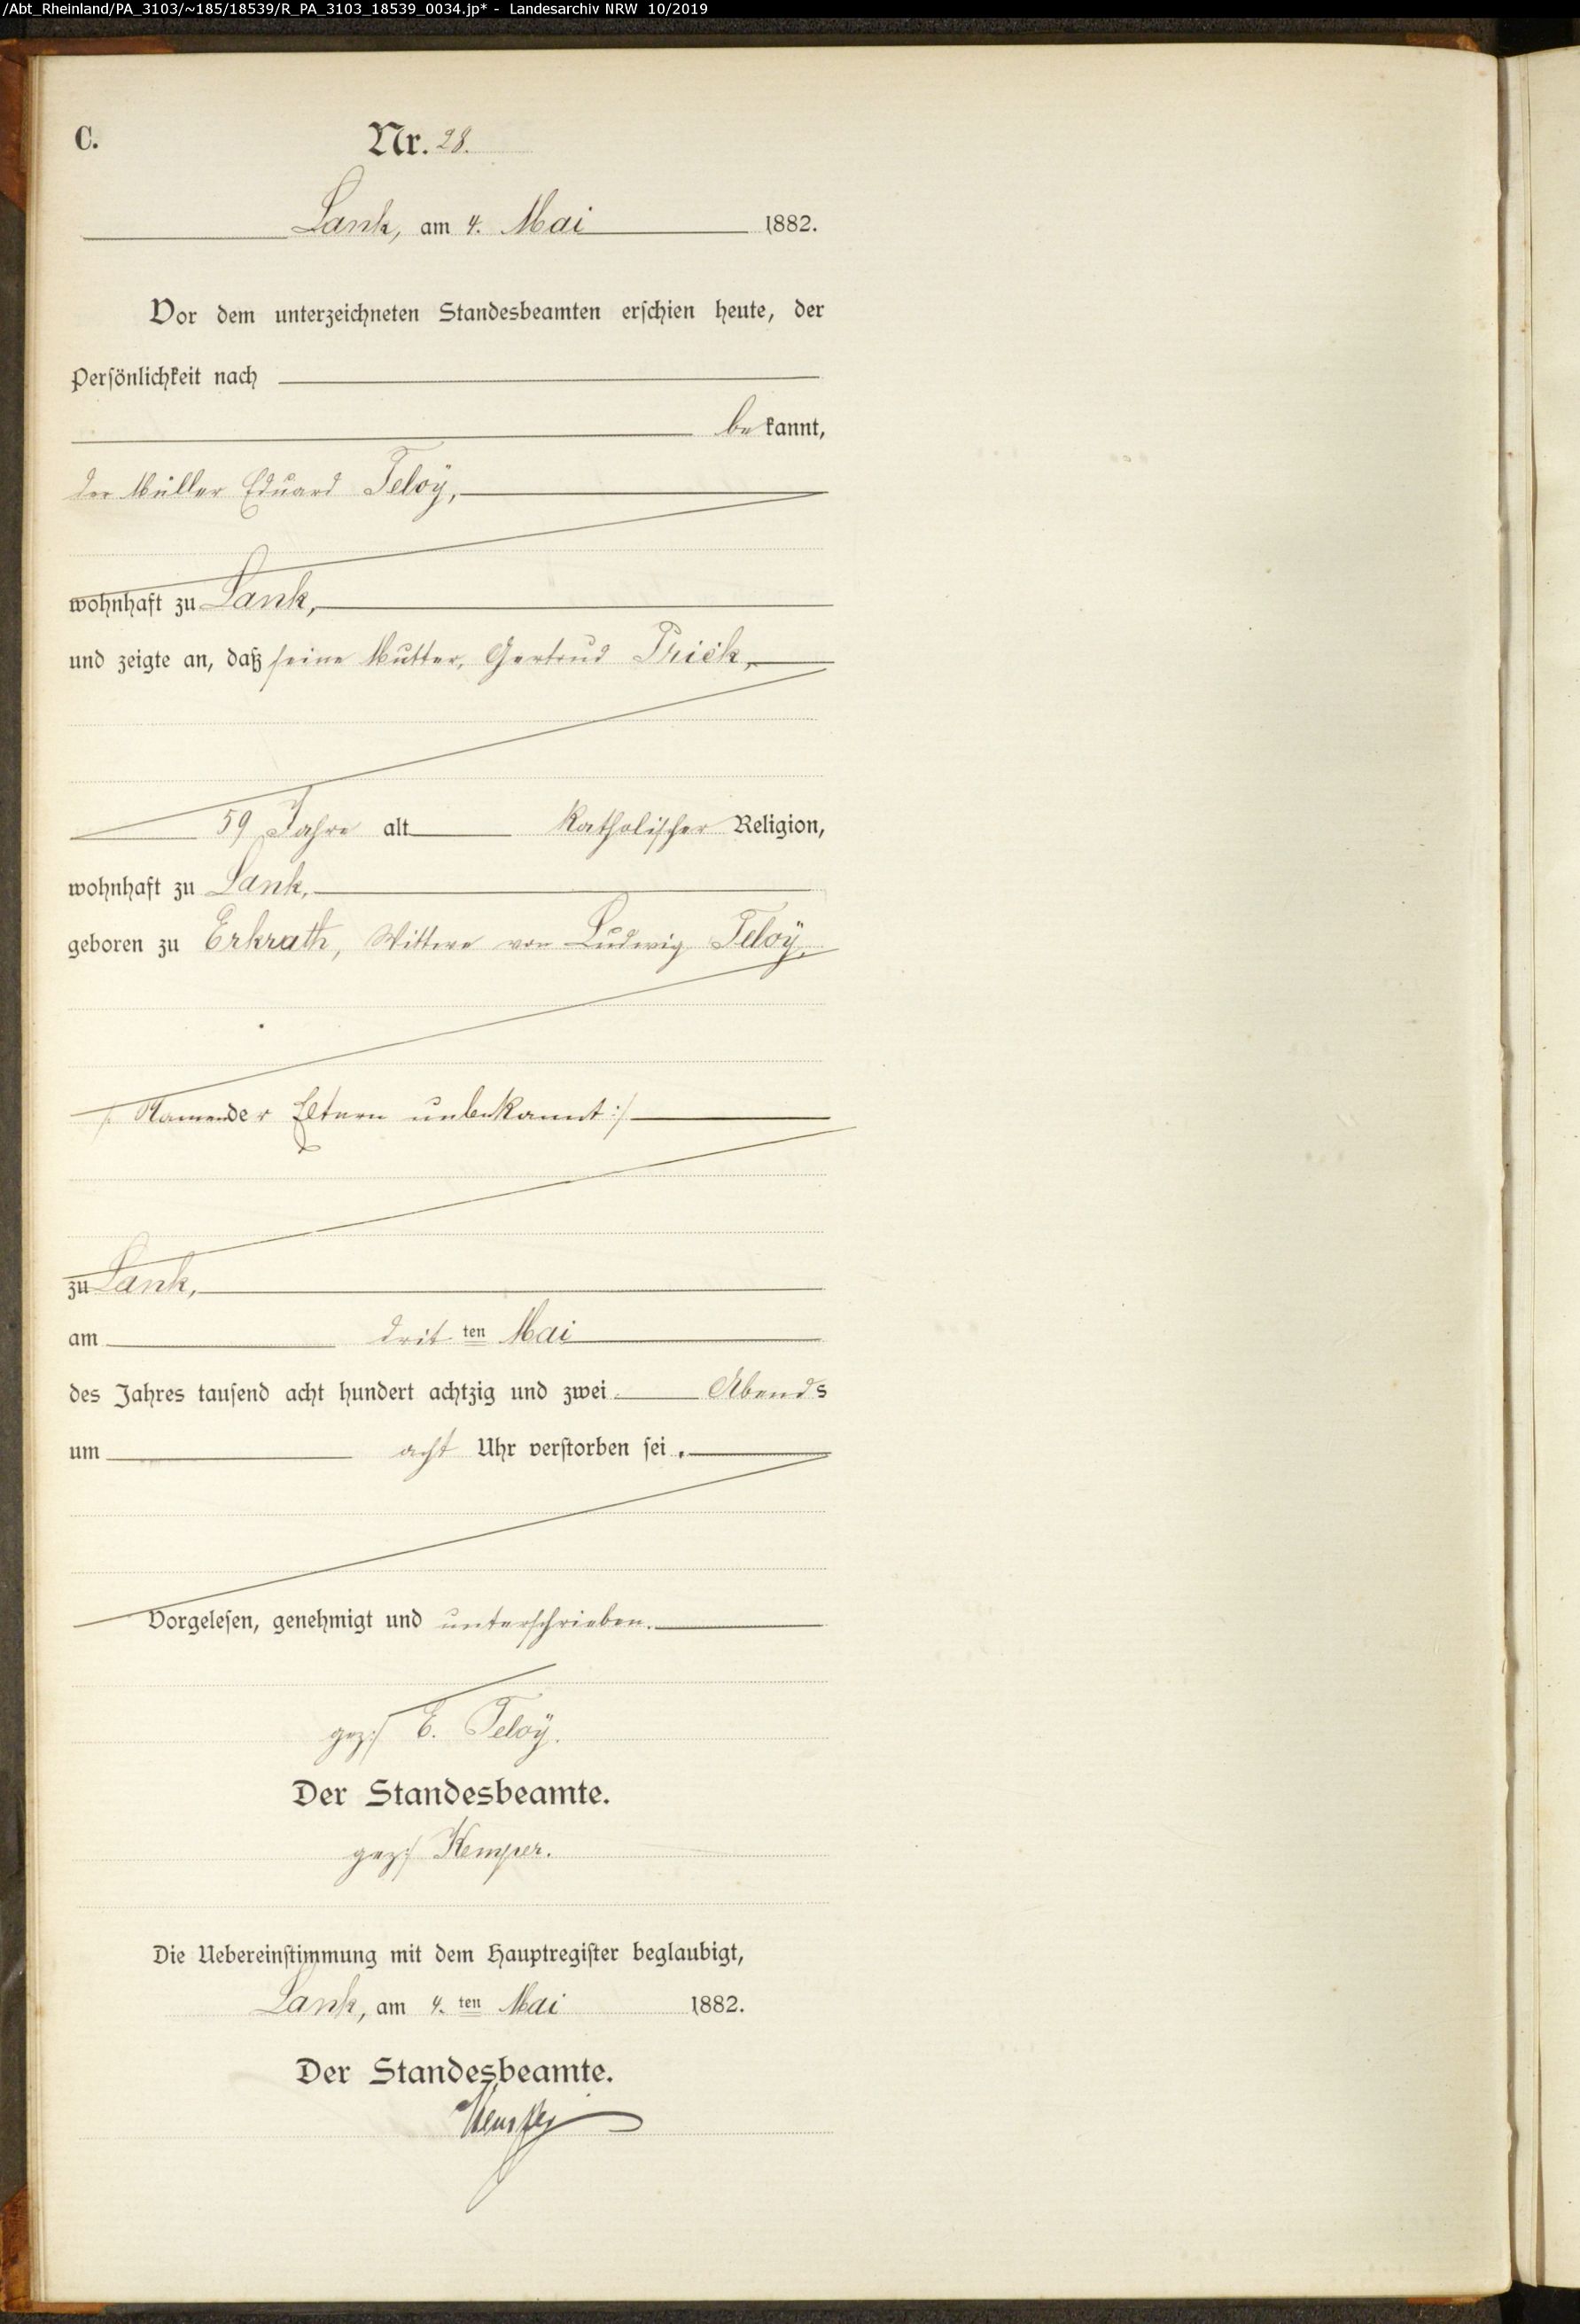 /Abt_Rheinland/PA_3103/~185/18539/R_PA_3103_18539_0034.jp* - Landesarchiv NRW 10/2019
C. Nr. 28.
Lank, am 4. Mai 1882.
Vor dem unterzeichneten Standesbeamten erschien heute, der
Persönlichkeit nach
bekannt,
der Müller Eduard Teloÿ,
wohnhaft zu Lank,
und zeigte an, daß seine Mutter, Gertrud Prick,
59 Jahre alt katholischer Religion,
wohnhaft zu Lank,
geboren zu Erkrath, Wittwe von Ludwig Teloÿ,
/: Namen der Eltern unbekannt :/
zu Lank,
am dritten Mai
des Jahres tausend acht hundert achtzig und zwei Abends
um acht Uhr verstorben sei.
Vorgelesen, genehmigt und unterschrieben.
gez:/ E. Teloÿ.
Der Standesbeamte.
gez:/ Kemper.
Die Uebereinstimmung mit dem Hauptregister beglaubigt,
Lank, am 4.ten Mai 1882.
Der Standesbeamte.
Kemper